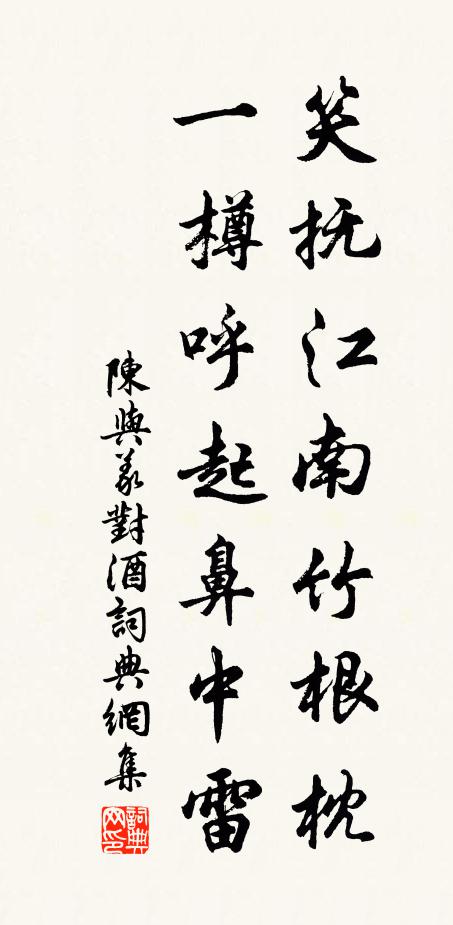 笑抚江南竹根枕
一樽呼起鼻中雷
陳與義對酒詞典網集
詞典網印